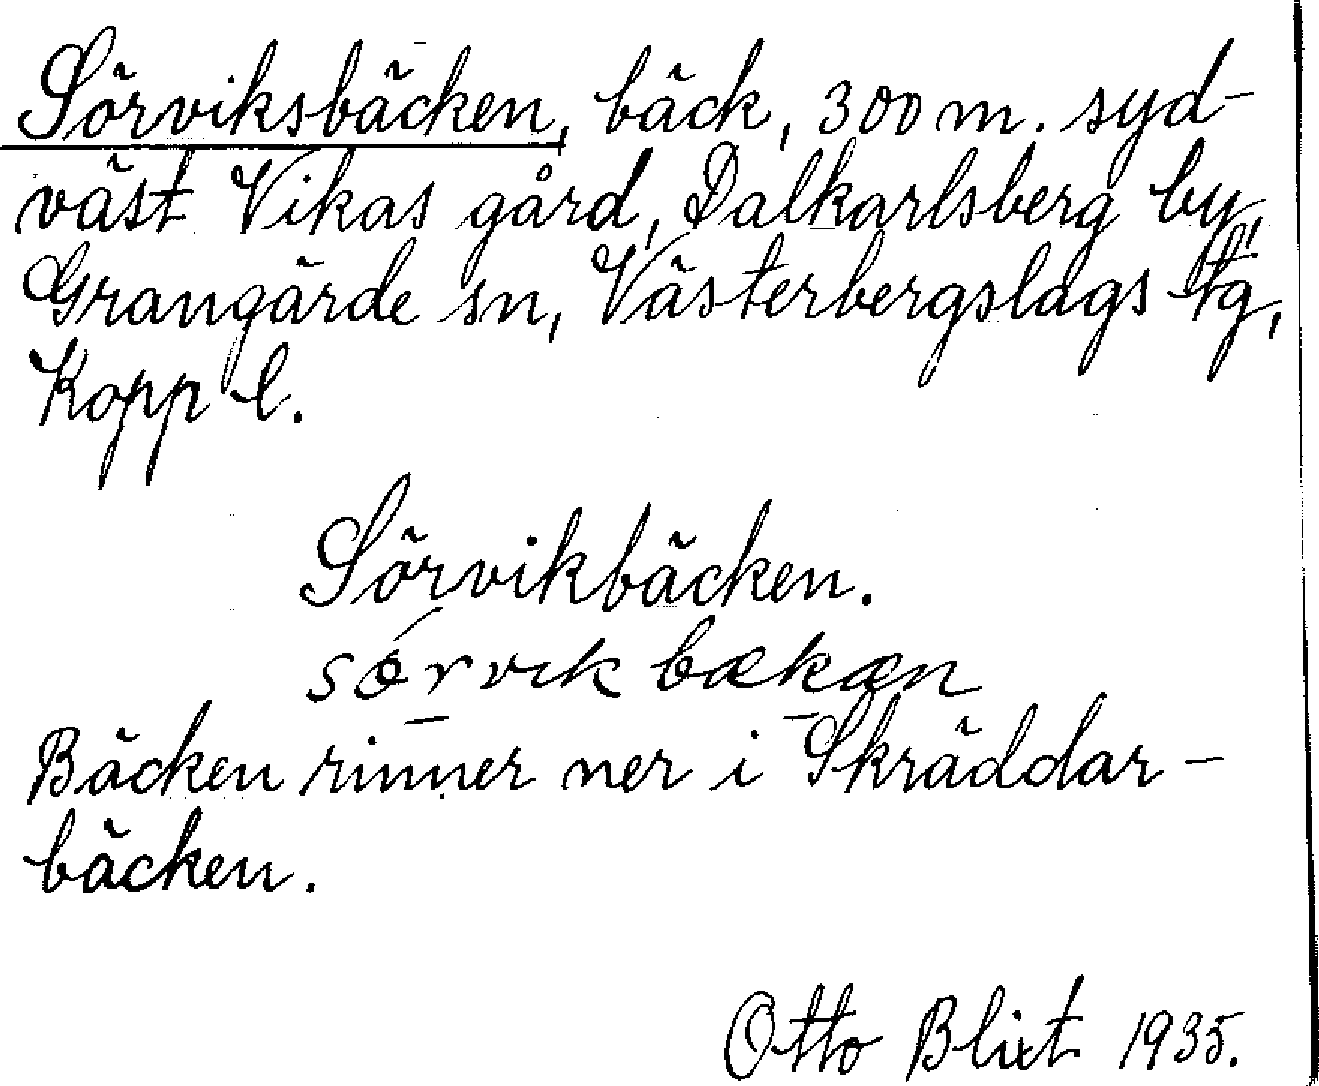 Sörviksbäcken, bäck, 300 m. syd-
väst Vikas gård, Dalkarlsberg by,
Grangärde sn, Västerbergslags tg,
Kopp l.
Sörvikbäcken.
sórvik bækæn
Bäcken rinner ner i Skräddar-
bäcken.
Otto Blixt 1935.